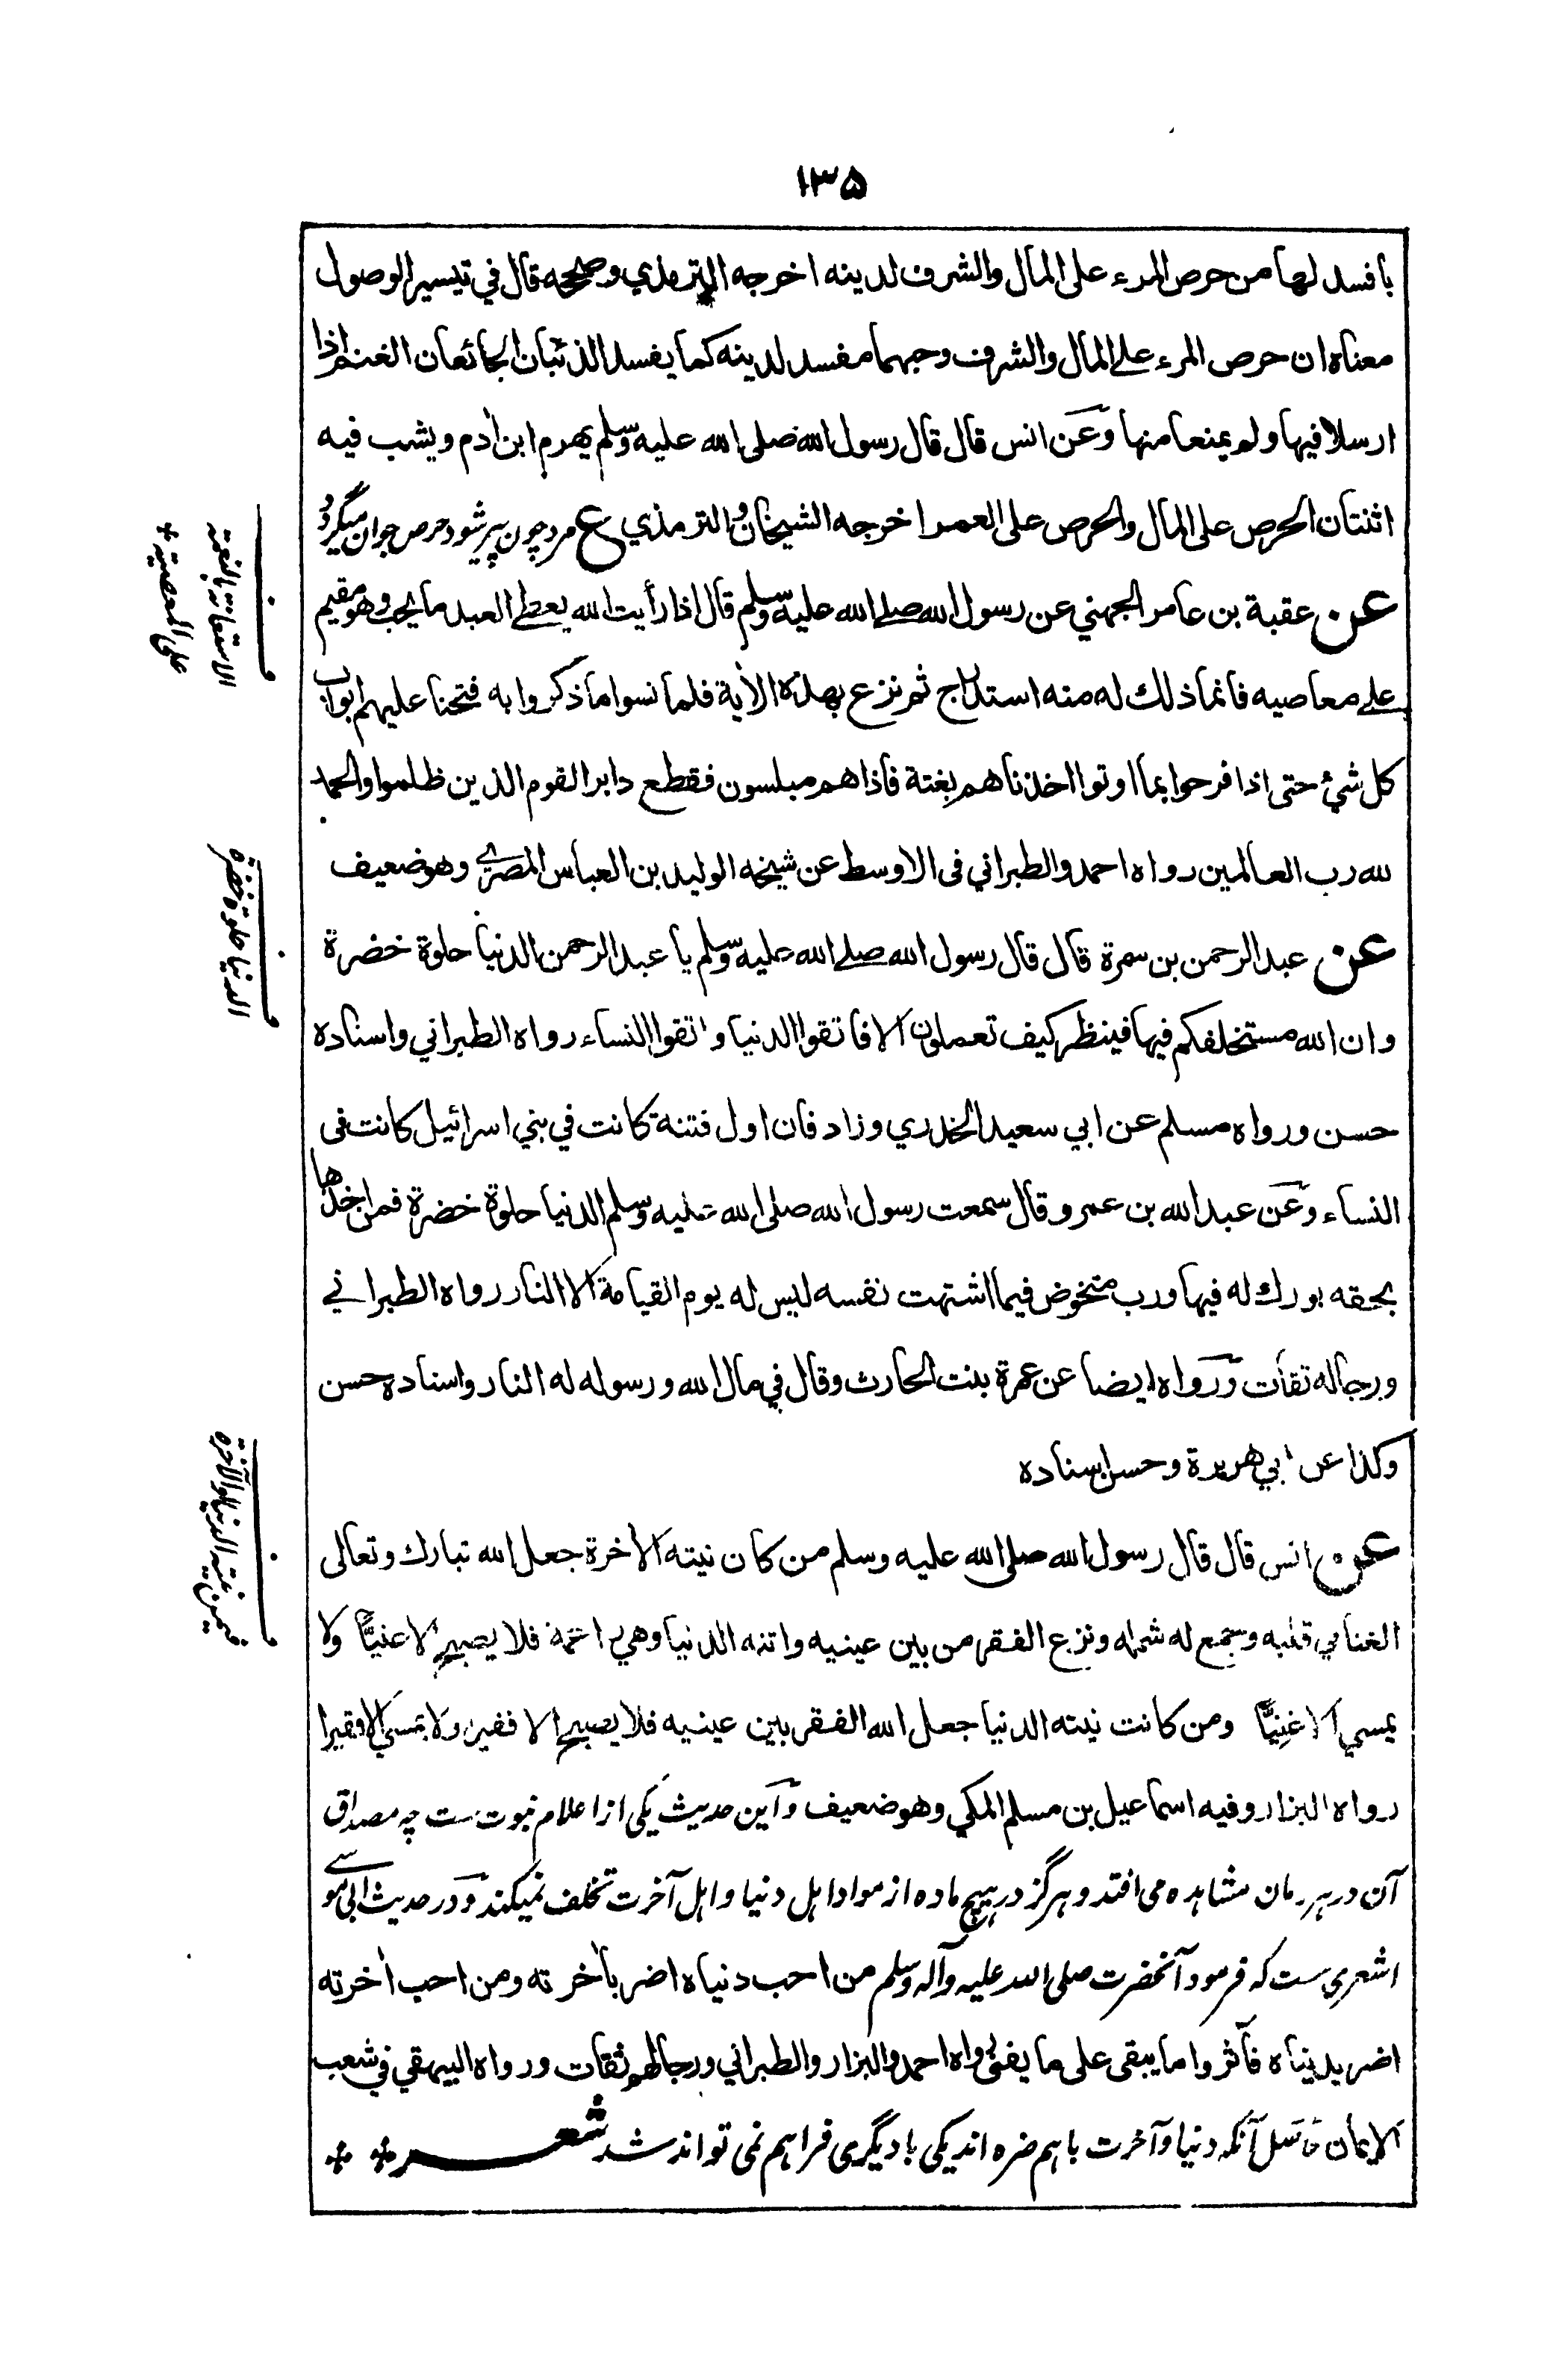 ۱۳۵
بافسد لها من حرص المرء على المال والشرف لدينه اخرجه الترمذي وصححه قال في تيسير الوصول
معناه ان حرص المرء على المال والشرف وحبهما مفسد لدينه كما يفسد الذئبان الجائعان الغنم اذا
ارسلا فيها ولم يمنعا منها وعن انس قال قال رسول الله صلى الله عليه وسلم يهرم ابن أدم ويشب فيه
اثنتان الحرص على المال والحرص على العمر اخرجه الشيخان والترمذي ع مرد چون پیر شود حرص جوان میگردد
عن عقبة بن عامر الجهني عن رسول الله صلى الله عليه وسلم قال اذا رأيت الله يعطى العبد ما يحب وهو مقيم
على معاصيه فانما ذلك له منه استدراج ثم نزع بهذه الأية فلما نسوا ما ذكروا به فتحنا عليهم ابواب
كل شئ حتى اذا فرحوا بما اوتوا اخذناهم بغتة فاذا هم مبلسون فقطع دابر القوم الذين ظلموا والحمد
لله رب العالمين رواه احمد والطبراني فى الاوسط عن شيخه الوليد بن العباس المصرى وهو ضعيف
عن عبد الرحمن بن سمرة قال قال رسول الله صلى الله عليه وسلم يا عبد الرحمن الدنيا حلوة خضرة
وان الله مستخلفكم فيها فينظر كيف تعملون الا فاتقوا الدنيا واتقوا النساء رواه الطبراني واسناده
حسن ورواه مسلم عن ابي سعيد الخدري وزاد فان اول فتنة كانت في بني اسرائيل كانت فى
النساء وعن عبد الله بن عمرو قال سمعت رسول الله صلى الله عليه وسلم الدنيا حلوة خضرة فمن اخذها
بحقه بورك له فيها ورب متخوض فيما اشتهت نفسه ليس له يوم القيامة الا النار رواه الطبراني
ورجاله ثقات ورواه ايضا عن عمرة بنت الحارث وقال في مال الله ورسوله له النار واسناده حسن
وكذا عن ابي هريرة وحسن اسناده
عن انس قال قال رسول الله صلى الله عليه وسلم من كان نيته الأخرة جعل الله تبارك وتعالى
الغنا في قلبه وجمع له شمله ونزع الفقر من بين عينيه واتته الدنيا وهي راغمة فلا يصبح الا غنيًّا ولا
يمسي الا غنيًّا ومن كانت نيته الدنيا جعل الله الفقر بين عينيه فلا يصبح الا فقيرا ولا يمسي الا فقيرا
رواه البزار وفيه اسماعيل بن مسلم المكي وهو ضعيف واین حدیث یکی از اعلام نبوت ست چه مصداق
آن در هر زمان مشاهده می افتد و هرگز در هیچ ماده از مواد اهل دنیا و اهل آخرت تخلف نمیکند و در حدیث ابی موسے
اشعری ست که فرمود آنحضرت صلی الله علیه وآله وسلم من احب دنياه اضر بأخرته ومن احب أخرته
اضر بدنياه فأثروا ما يبقى على ما يفنى رواه احمد والبزار والطبراني ورجالهم ثقات ورواه البيهقي في شعب
الايمان حاصل آنکه دنیا وآخرت باهم ضره اند یکی با دیگری فراهم نمی تواند شد شعر
ف
الاستعانة بالنعمة
على المعصية
ف
الدنيا حلوة خضرة
ف
فيمن نيته الدنيا والآخرة